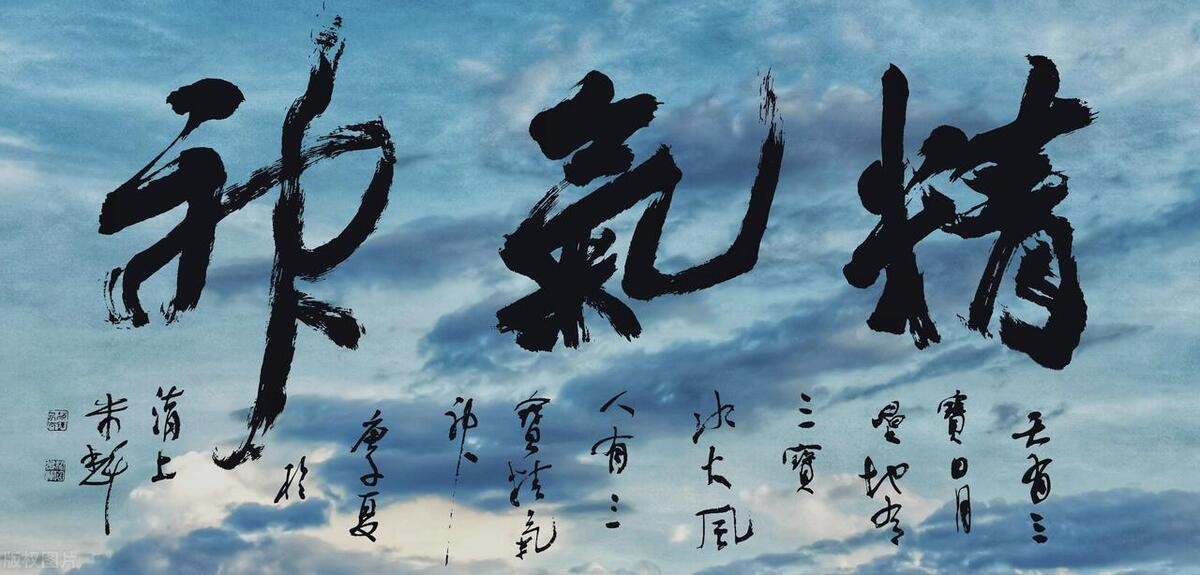 精氣神
天有三
寶日月
星地有
三寶
水火風
人有三
寶精氣
神
庚子夏
於
上
版权图片